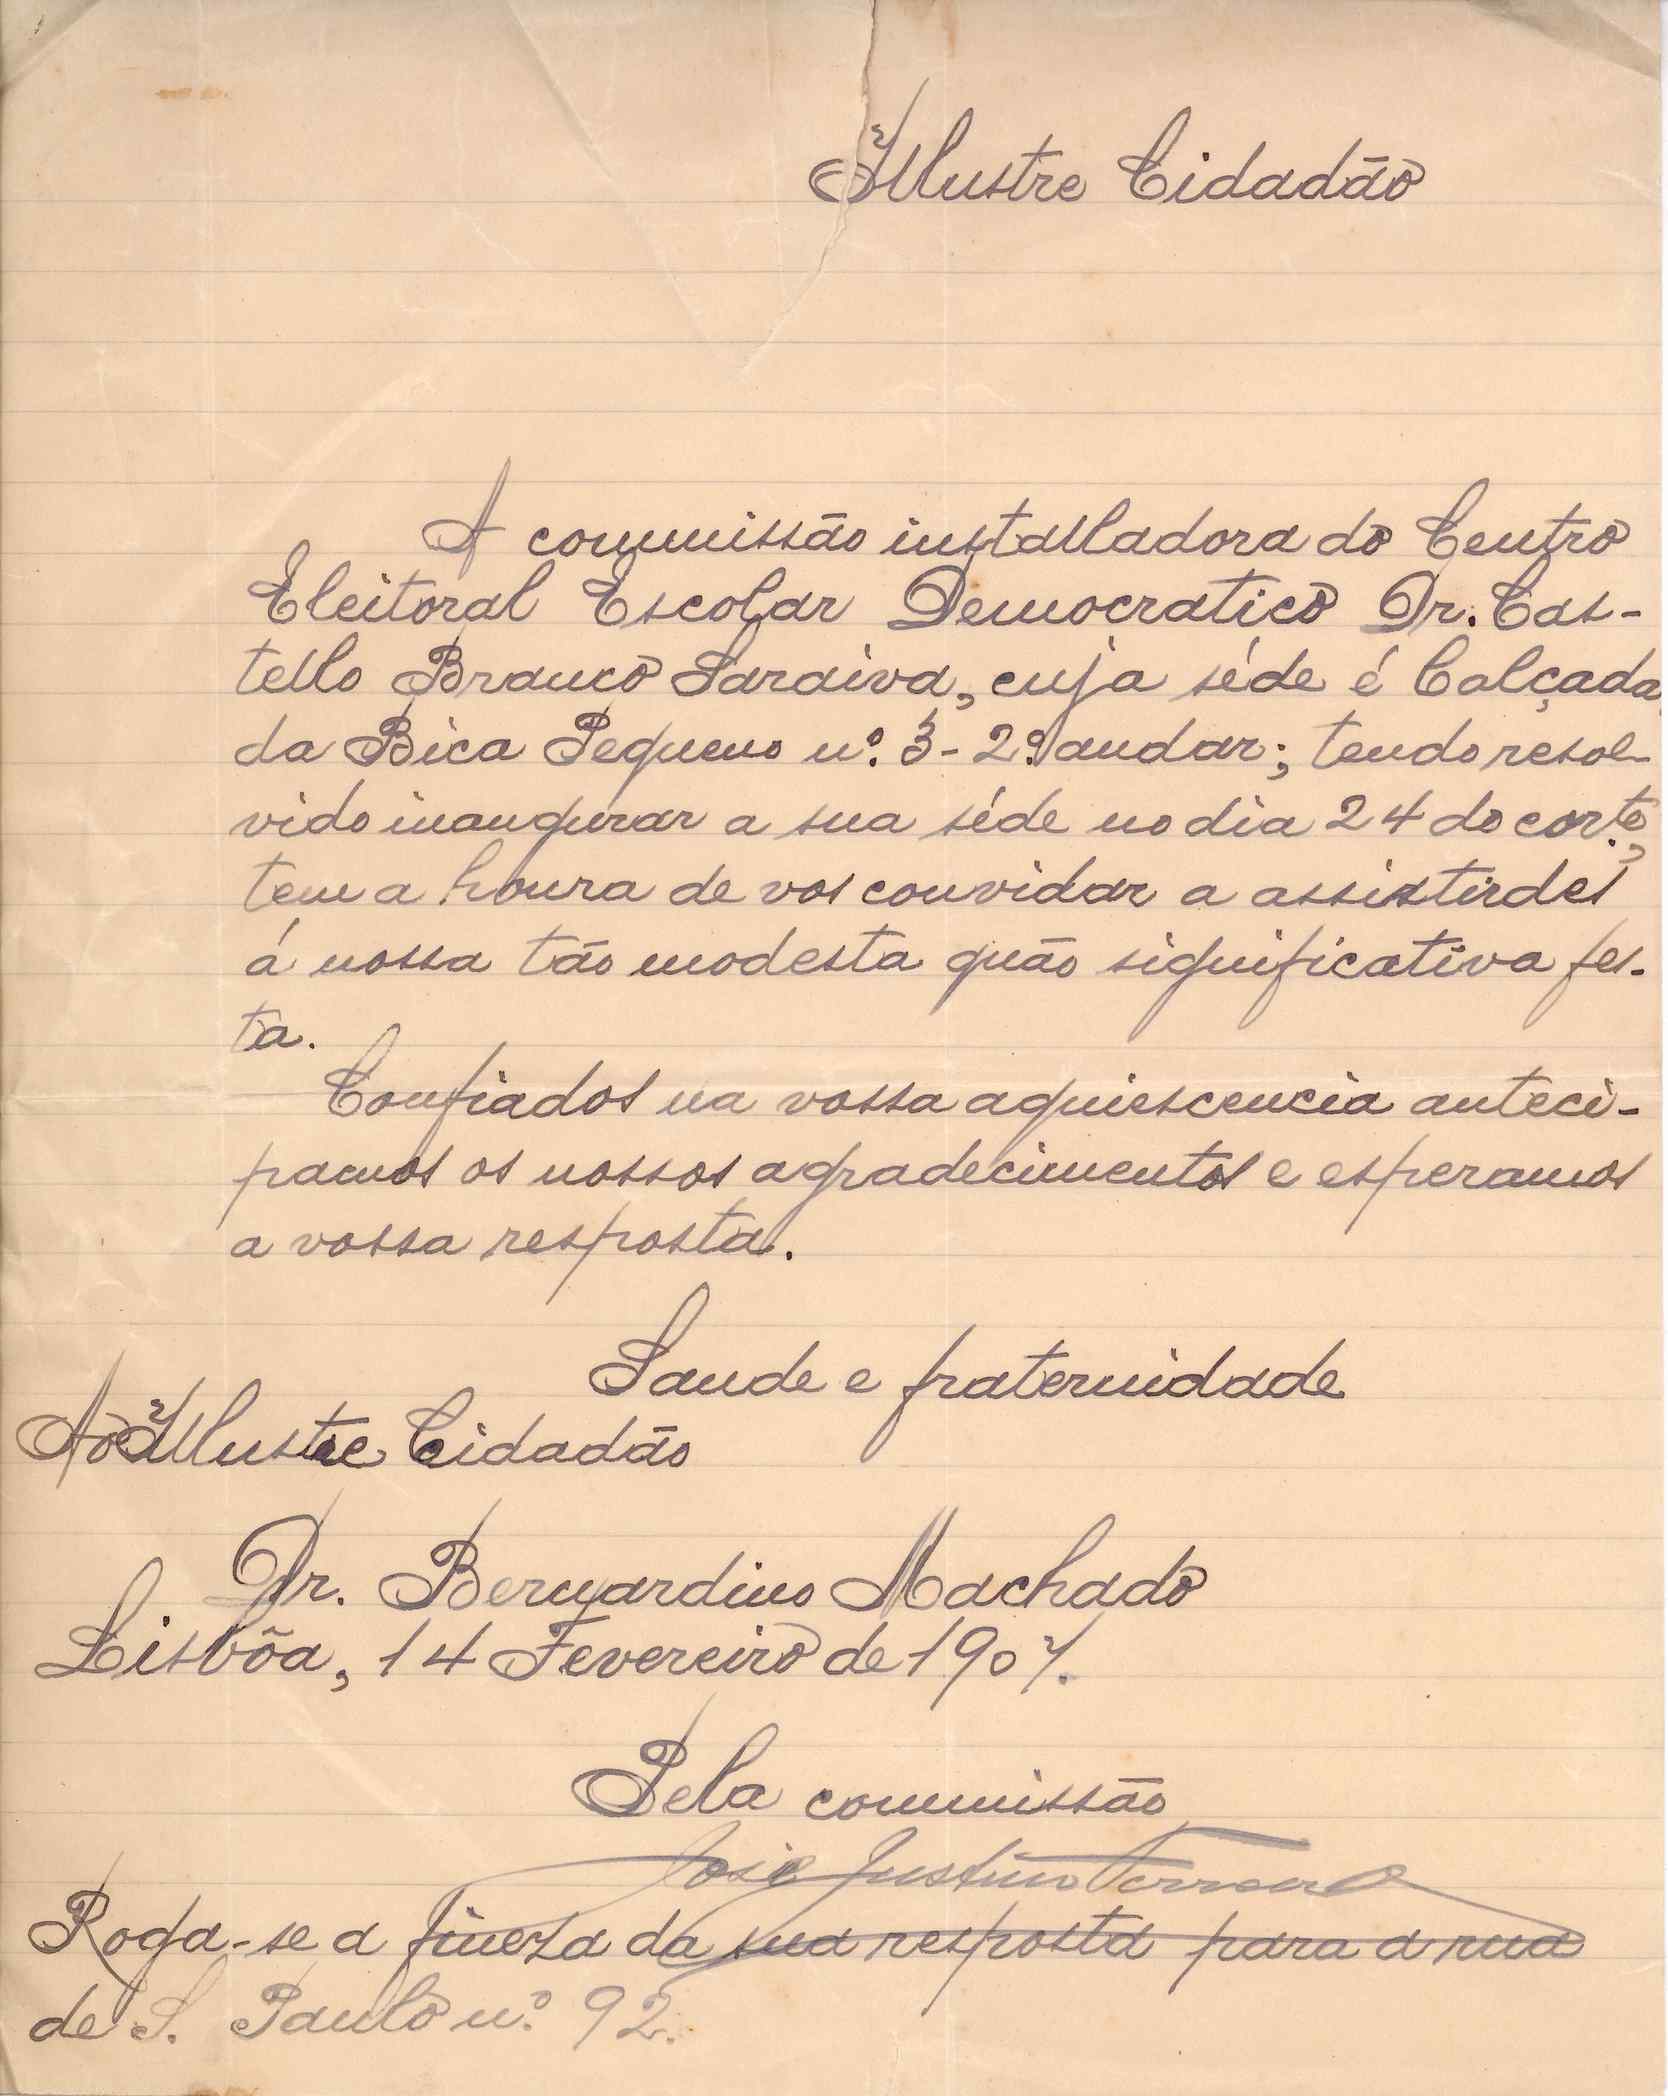 Illustre Cidadão
A commissão installadora do Centro
Eleitoral Escolar Democratico Dr. Cas-
tello Branco Saraiva, cuja séde é Calçada
da Bica Pequeno nº. 3 - 2º. andar; tendo resol-
vido inaugurar a sua séde no dia 24 do corte,
tem a honra de vos convidar a assistirdes
á nossa tão modesta quão significativa fes-
ta.
Confiados na vossa aquiescencia anteci-
pamos os nossos agradecimentos e esperamos
a vossa resposta.
Saude e fraternidade
Ao Illustre Cidadão
Dr. Bernardino Machado
Lisbôa, 14 Fevereiro de 1907.
Pela commissão
José Justino Ferreira
Roga-se a fineza da sua resposta para a rua
de S. Paulo nº. 92.